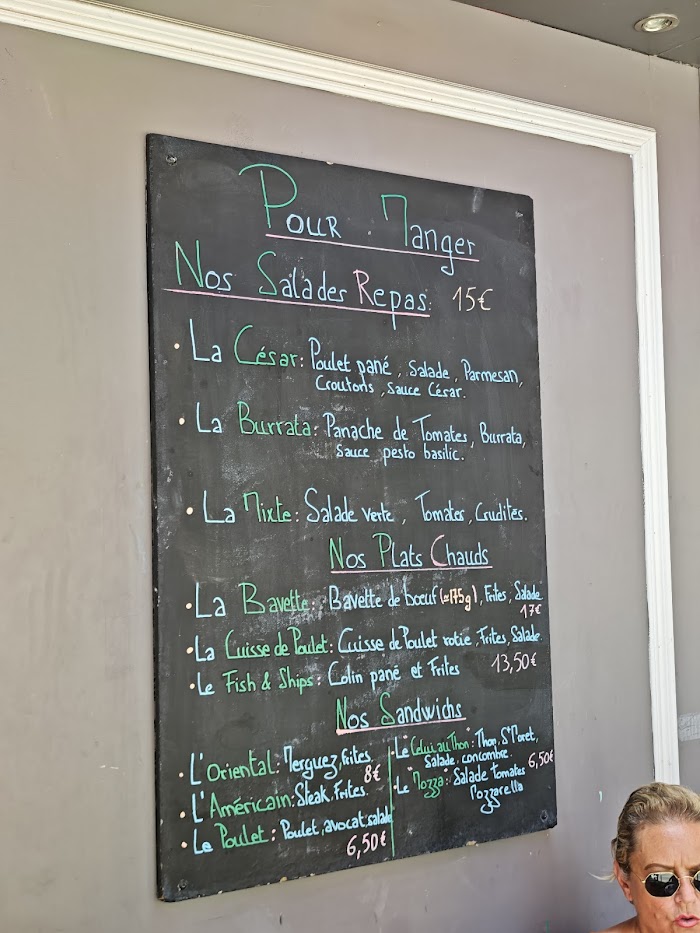 Pour Manger
Nos Salades Repas: 15€
• La César: Poulet pané, Salade, Parmesan,
Croutons, Sauce César.
• La Burrata: Panache de Tomates, Burrata,
Sauce pesto basilic.
• La Mixte: Salade verte, Tomates, Crudités.
Nos Plats Chauds
• La Bavette: Bavette de boeuf (≈175g), Frites, Salade
17€
• La Cuisse de Poulet: Cuisse de Poulet rotie, Frites, Salade.
• Le Fish & Ships: Colin pané et Frites 13,50€
Nos Sandwichs
• L'Oriental: Merguez, frites
8€
• L'Américain: Steak, Frites.
• Le Poulet: Poulet, avocat, salade
6,50€
• Le "Celui au Thon": Thon, St Moret,
Salade, concombre. 6,50€
• Le "Mozza": Salade Tomates
Mozzarella